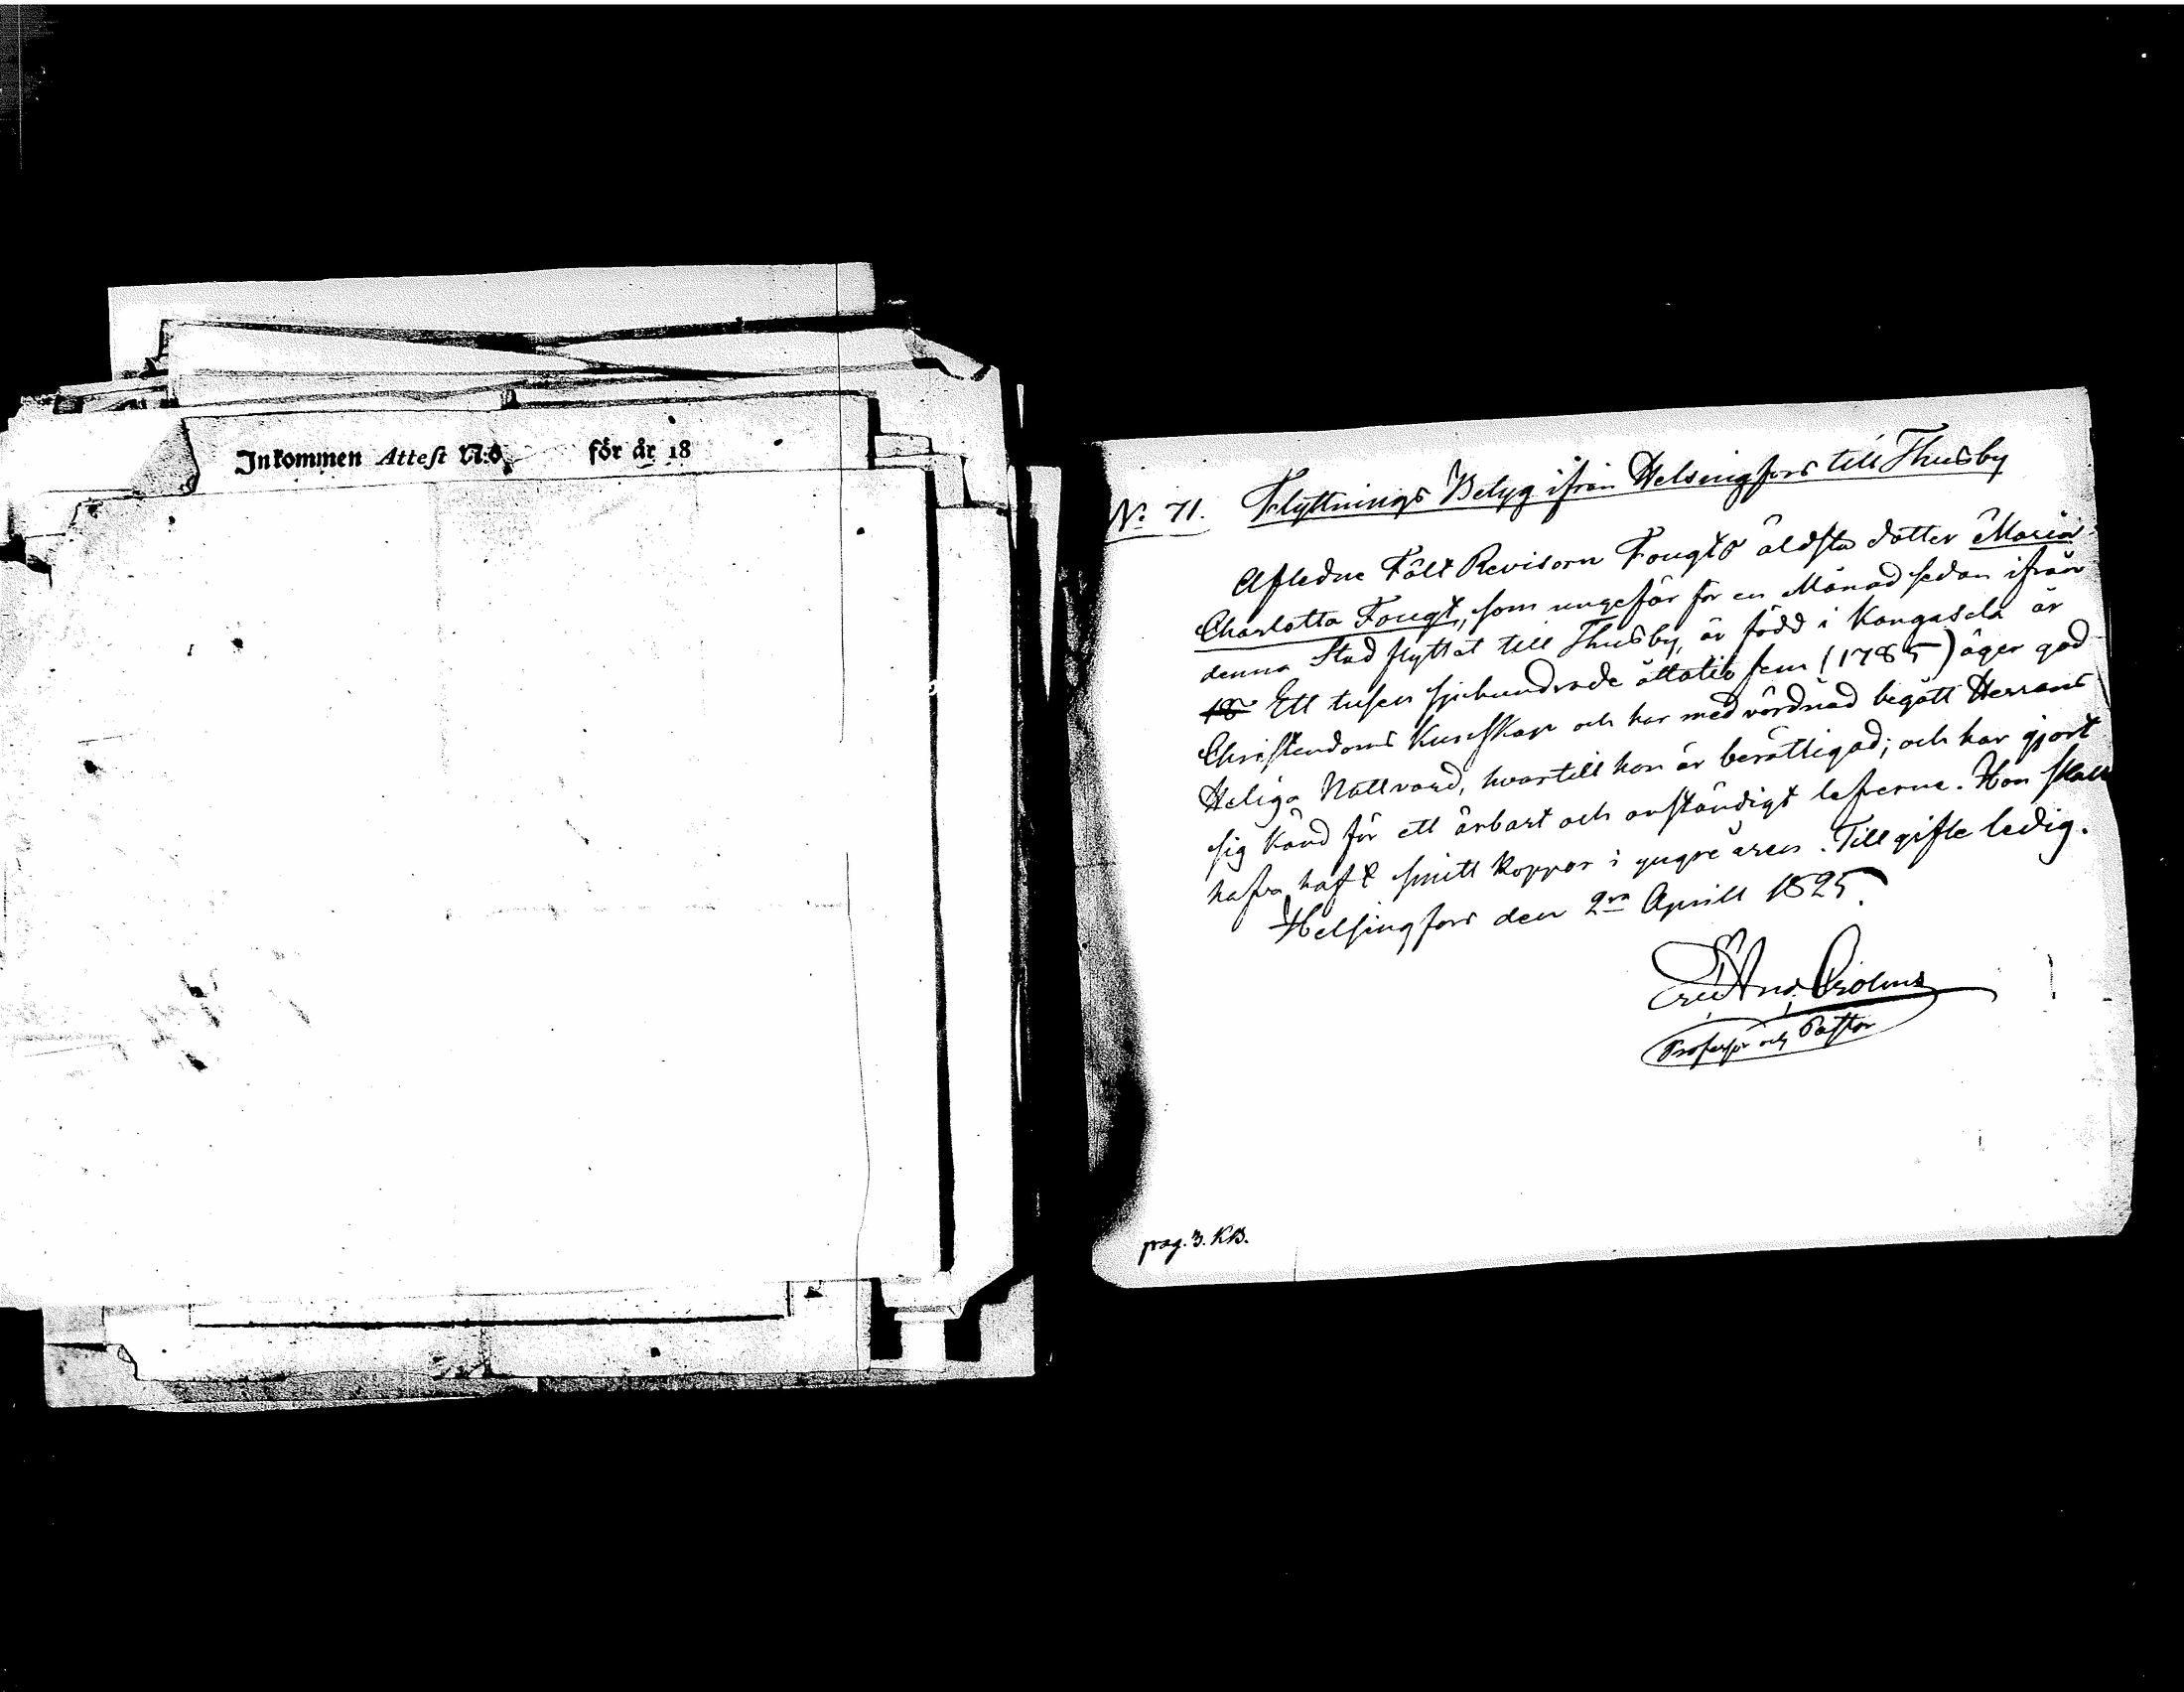 Inkommen Attest N:o för år 18
No. 71. Flyttnings Betyg ifrån Helsingfors till Thusby
Afledne Fält Revisorn Fougts äldsta dotter Maria
Charlotta Fougt, som ungefär för en Månad sedan ifrån
denna Stad flyttat till Thusby, är född i Kangasala år
18 Ett tusen sjuhundrade åttatio fem (1785) äger god
Christendoms Kunskap och har med vördnad begått Herrans
Heliga Nattvard, hvartill hon är berättigad; och har gjort
sig känd för ett ärbart och anständigt lefverne. Hon skall
hafva haft smitt koppor i yngre åren. Till gifte ledig.
Helsingfors den 2 Aprill 1825.
Professor och Pastor
pag. 3. KB.